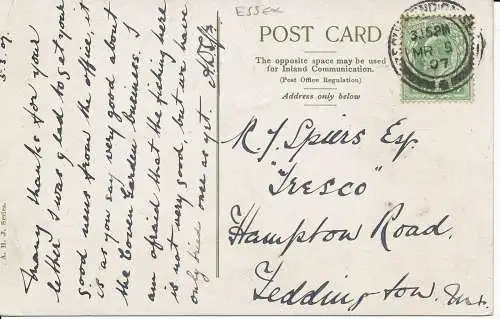 ESSEX
POST CARD
The opposite space may be used
for Inland Communication.
(Post Office Regulation)
Address only below
3.15PM
MR 5
07
5.3.07.
Many thanks for your
letter I was glad to get your
good news from the office, it
is as you say very good about
the Coven Garden business. I
am afraid that the fishing here
is not very good, but we have
only tried once as yet.
R J Spiers Esq
"Tresco"
Hampton Road.
Teddington.
A. H. J. Series.